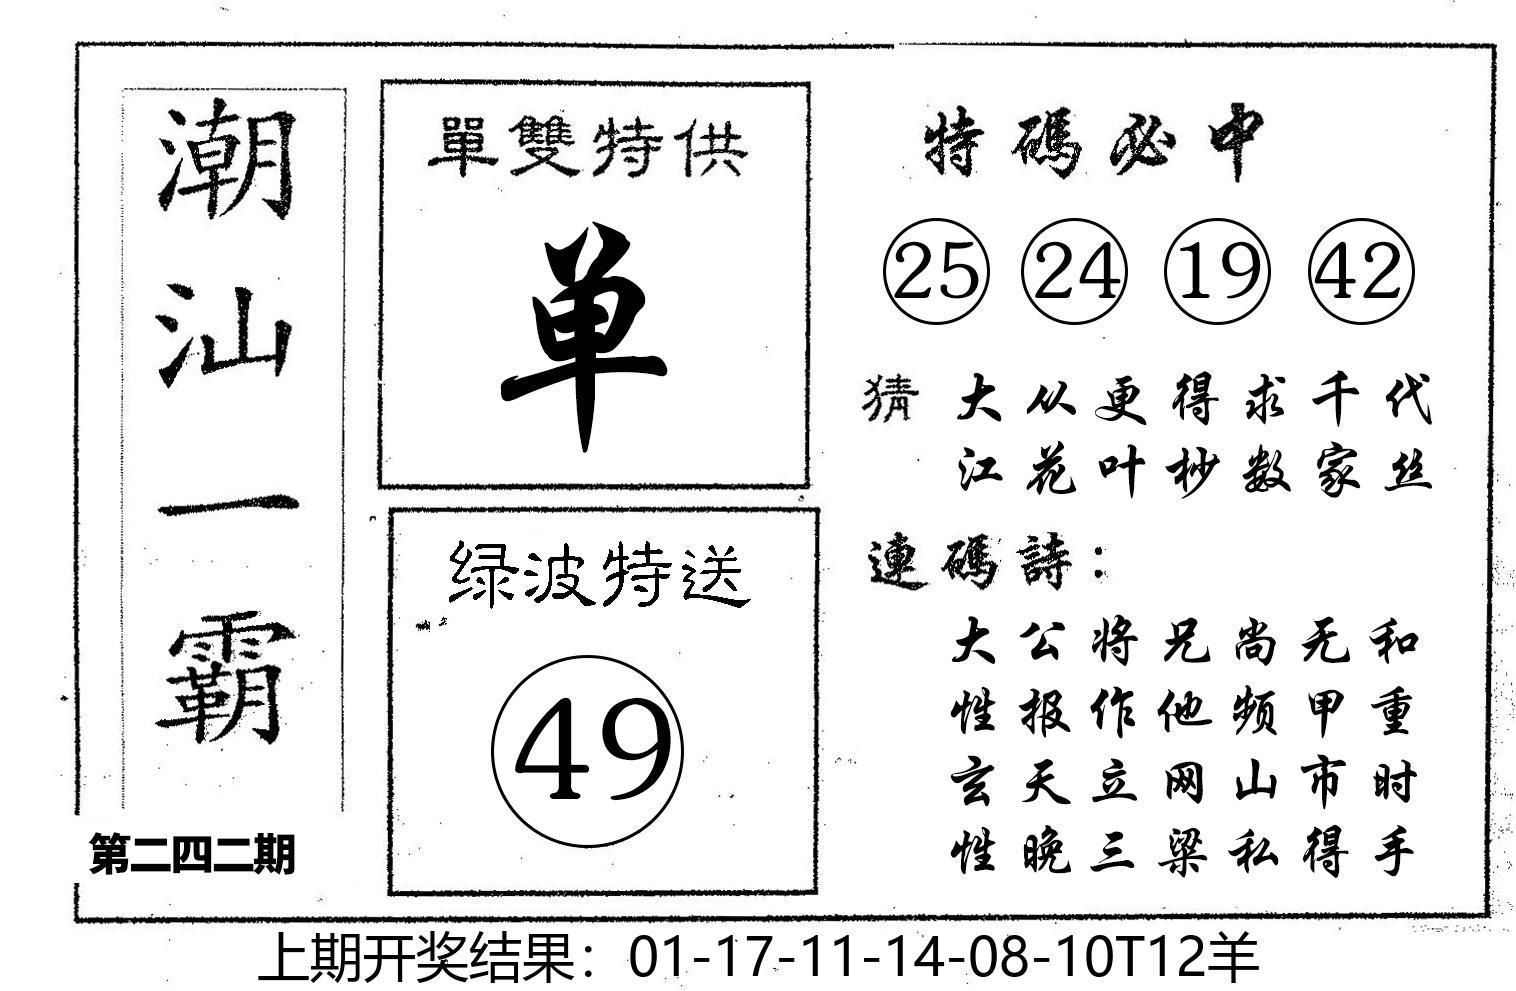 潮汕一霸
第二四二期
單雙特供
单
绿波特送
49
特碼必中
25 24 19 42
猜 大从更得求千代
江花叶杪数家丝
連碼詩：
大公将兄尚无和
性报作他频甲重
玄天立网山市时
性晚三梁私得手
上期开奖结果：01-17-11-14-08-10T12羊